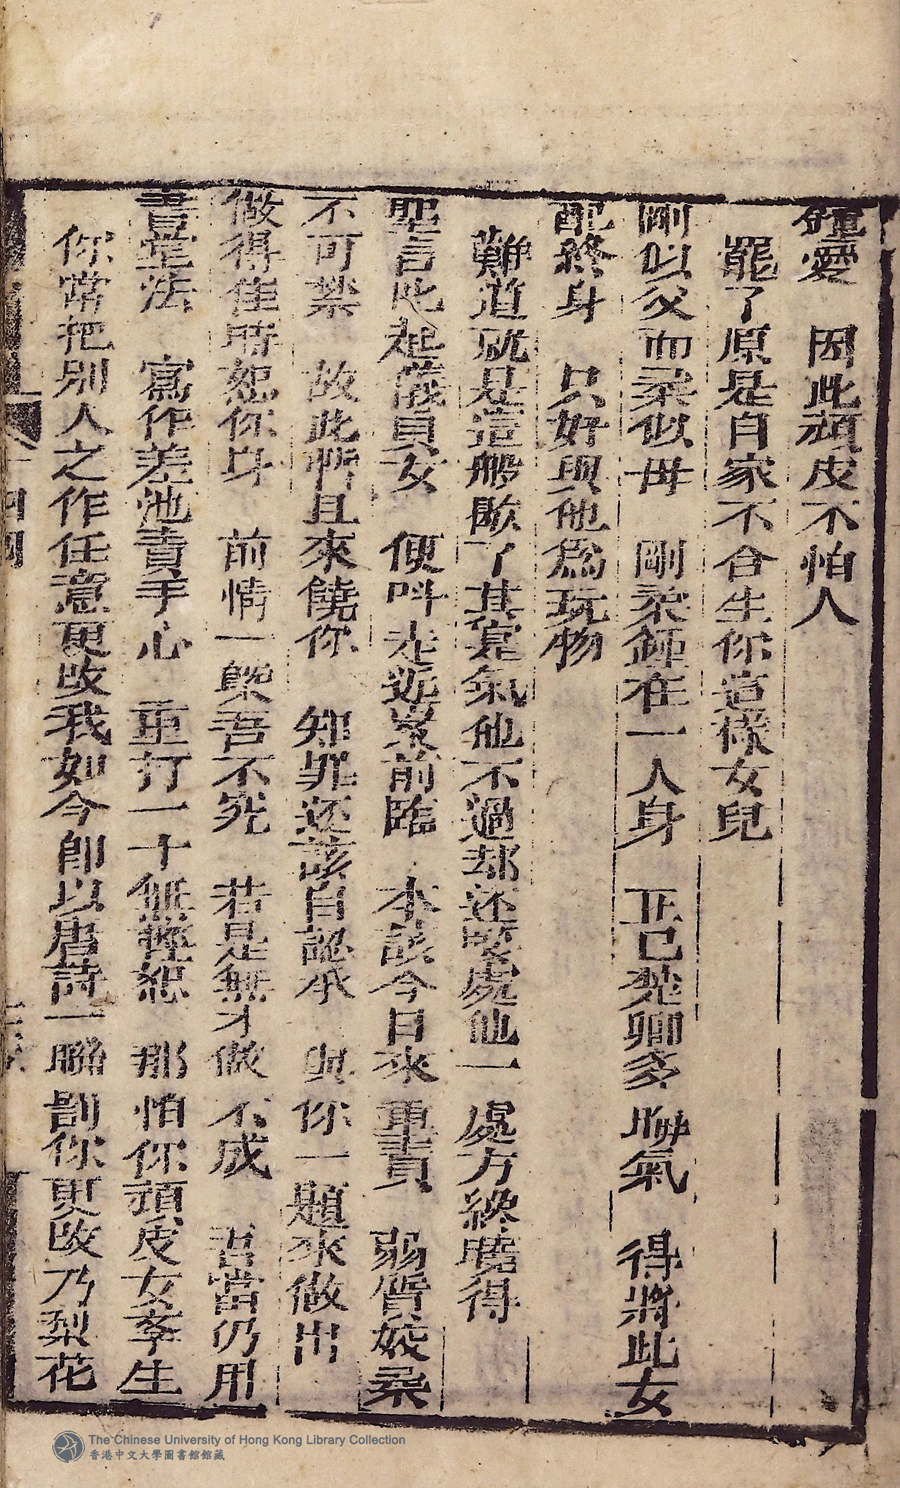 鍾愛　因此頑皮不怕人
罷了原是自家不合生你這樣女兒
剛似父而柔似母　剛柔鍾在一人身　正已楚卿多聨氣　得將此女
配終身　只好與他為玩物
難道就是這般歇了其寔氣他不過却还要處他一處方終曉得
聖言比起儀貞女　便呌走近案前臨　本該今日來重責　弱質姣柔
不可禁　故此暫且來饒你　知罪还該自認承　與你一題來做出
做得佳時恕你身　前情一槩吾不究　若是無才做不成　吾當仍用
書堂法　寫作差池責手心　重打一十無輕恕　那怕你頑皮女李生
你常把別人之作任意更改我如今即以唐詩一聮劄你更改乃梨花
The Chinese University of Hong Kong Library Collection
香港中文大學圖書館館藏